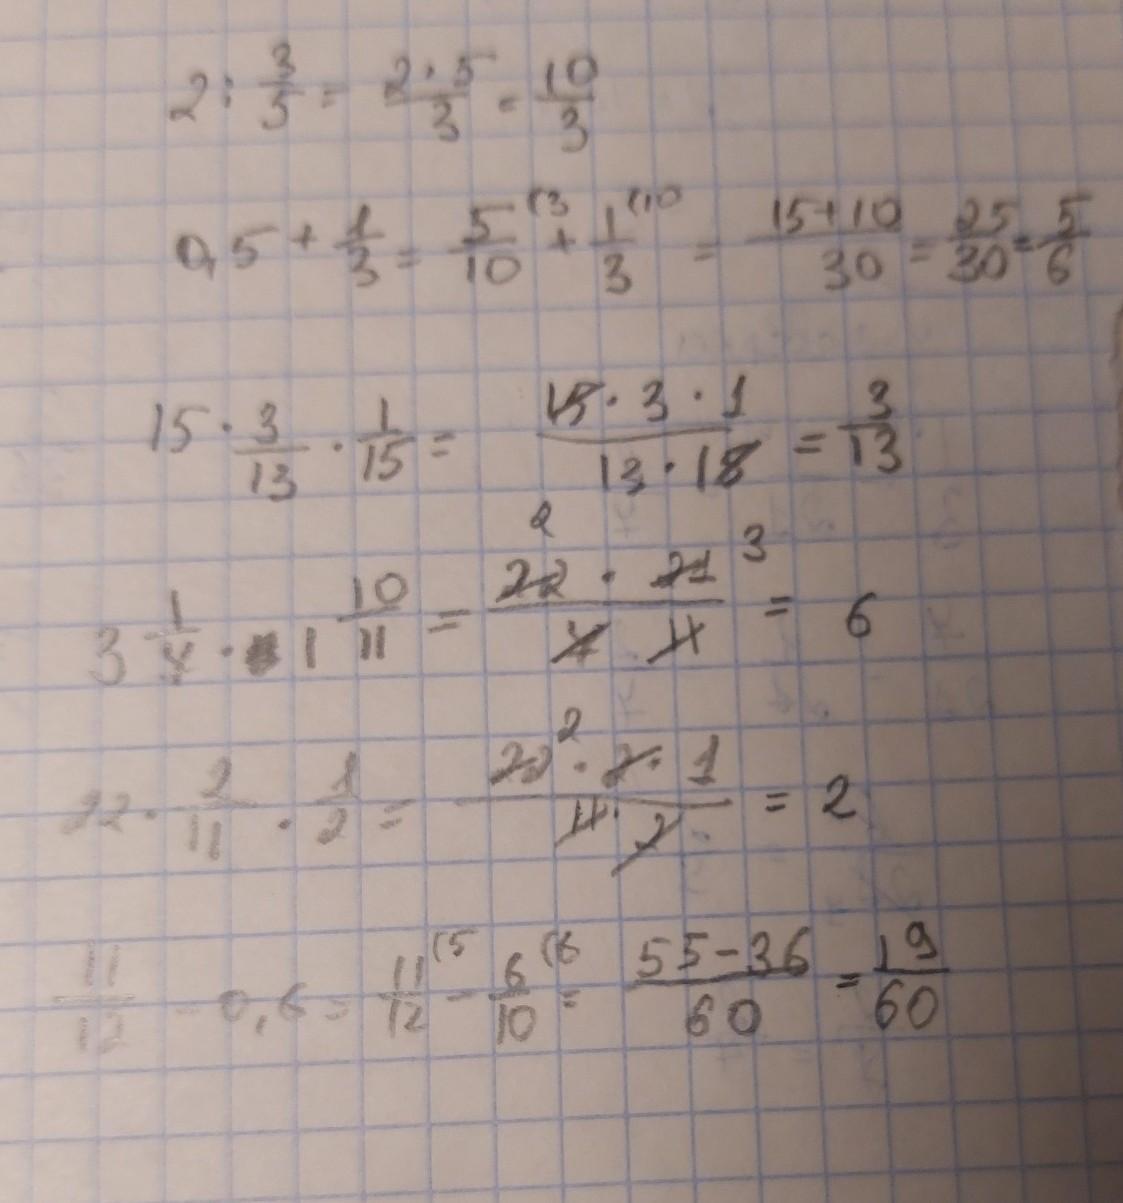 2 : 3/5 = 2·5/3 = 10/3
0,5 + 1/3 = 5/10 (3 + 1/3 (10 = 15+10/30 = 25/30 = 5/6
15 · 3/13 · 1/15 = 15·3·1/13·15 = 3/13
3 1/7 · 1 10/11 = 22 2 · 21 3/7 11 = 6
22 · 2/11 · 1/2 = 22 2 · 2 · 1/11 · 2 = 2
11/12 - 0,6 = 11/12 (5 - 6/10 (6 = 55-36/60 = 19/60